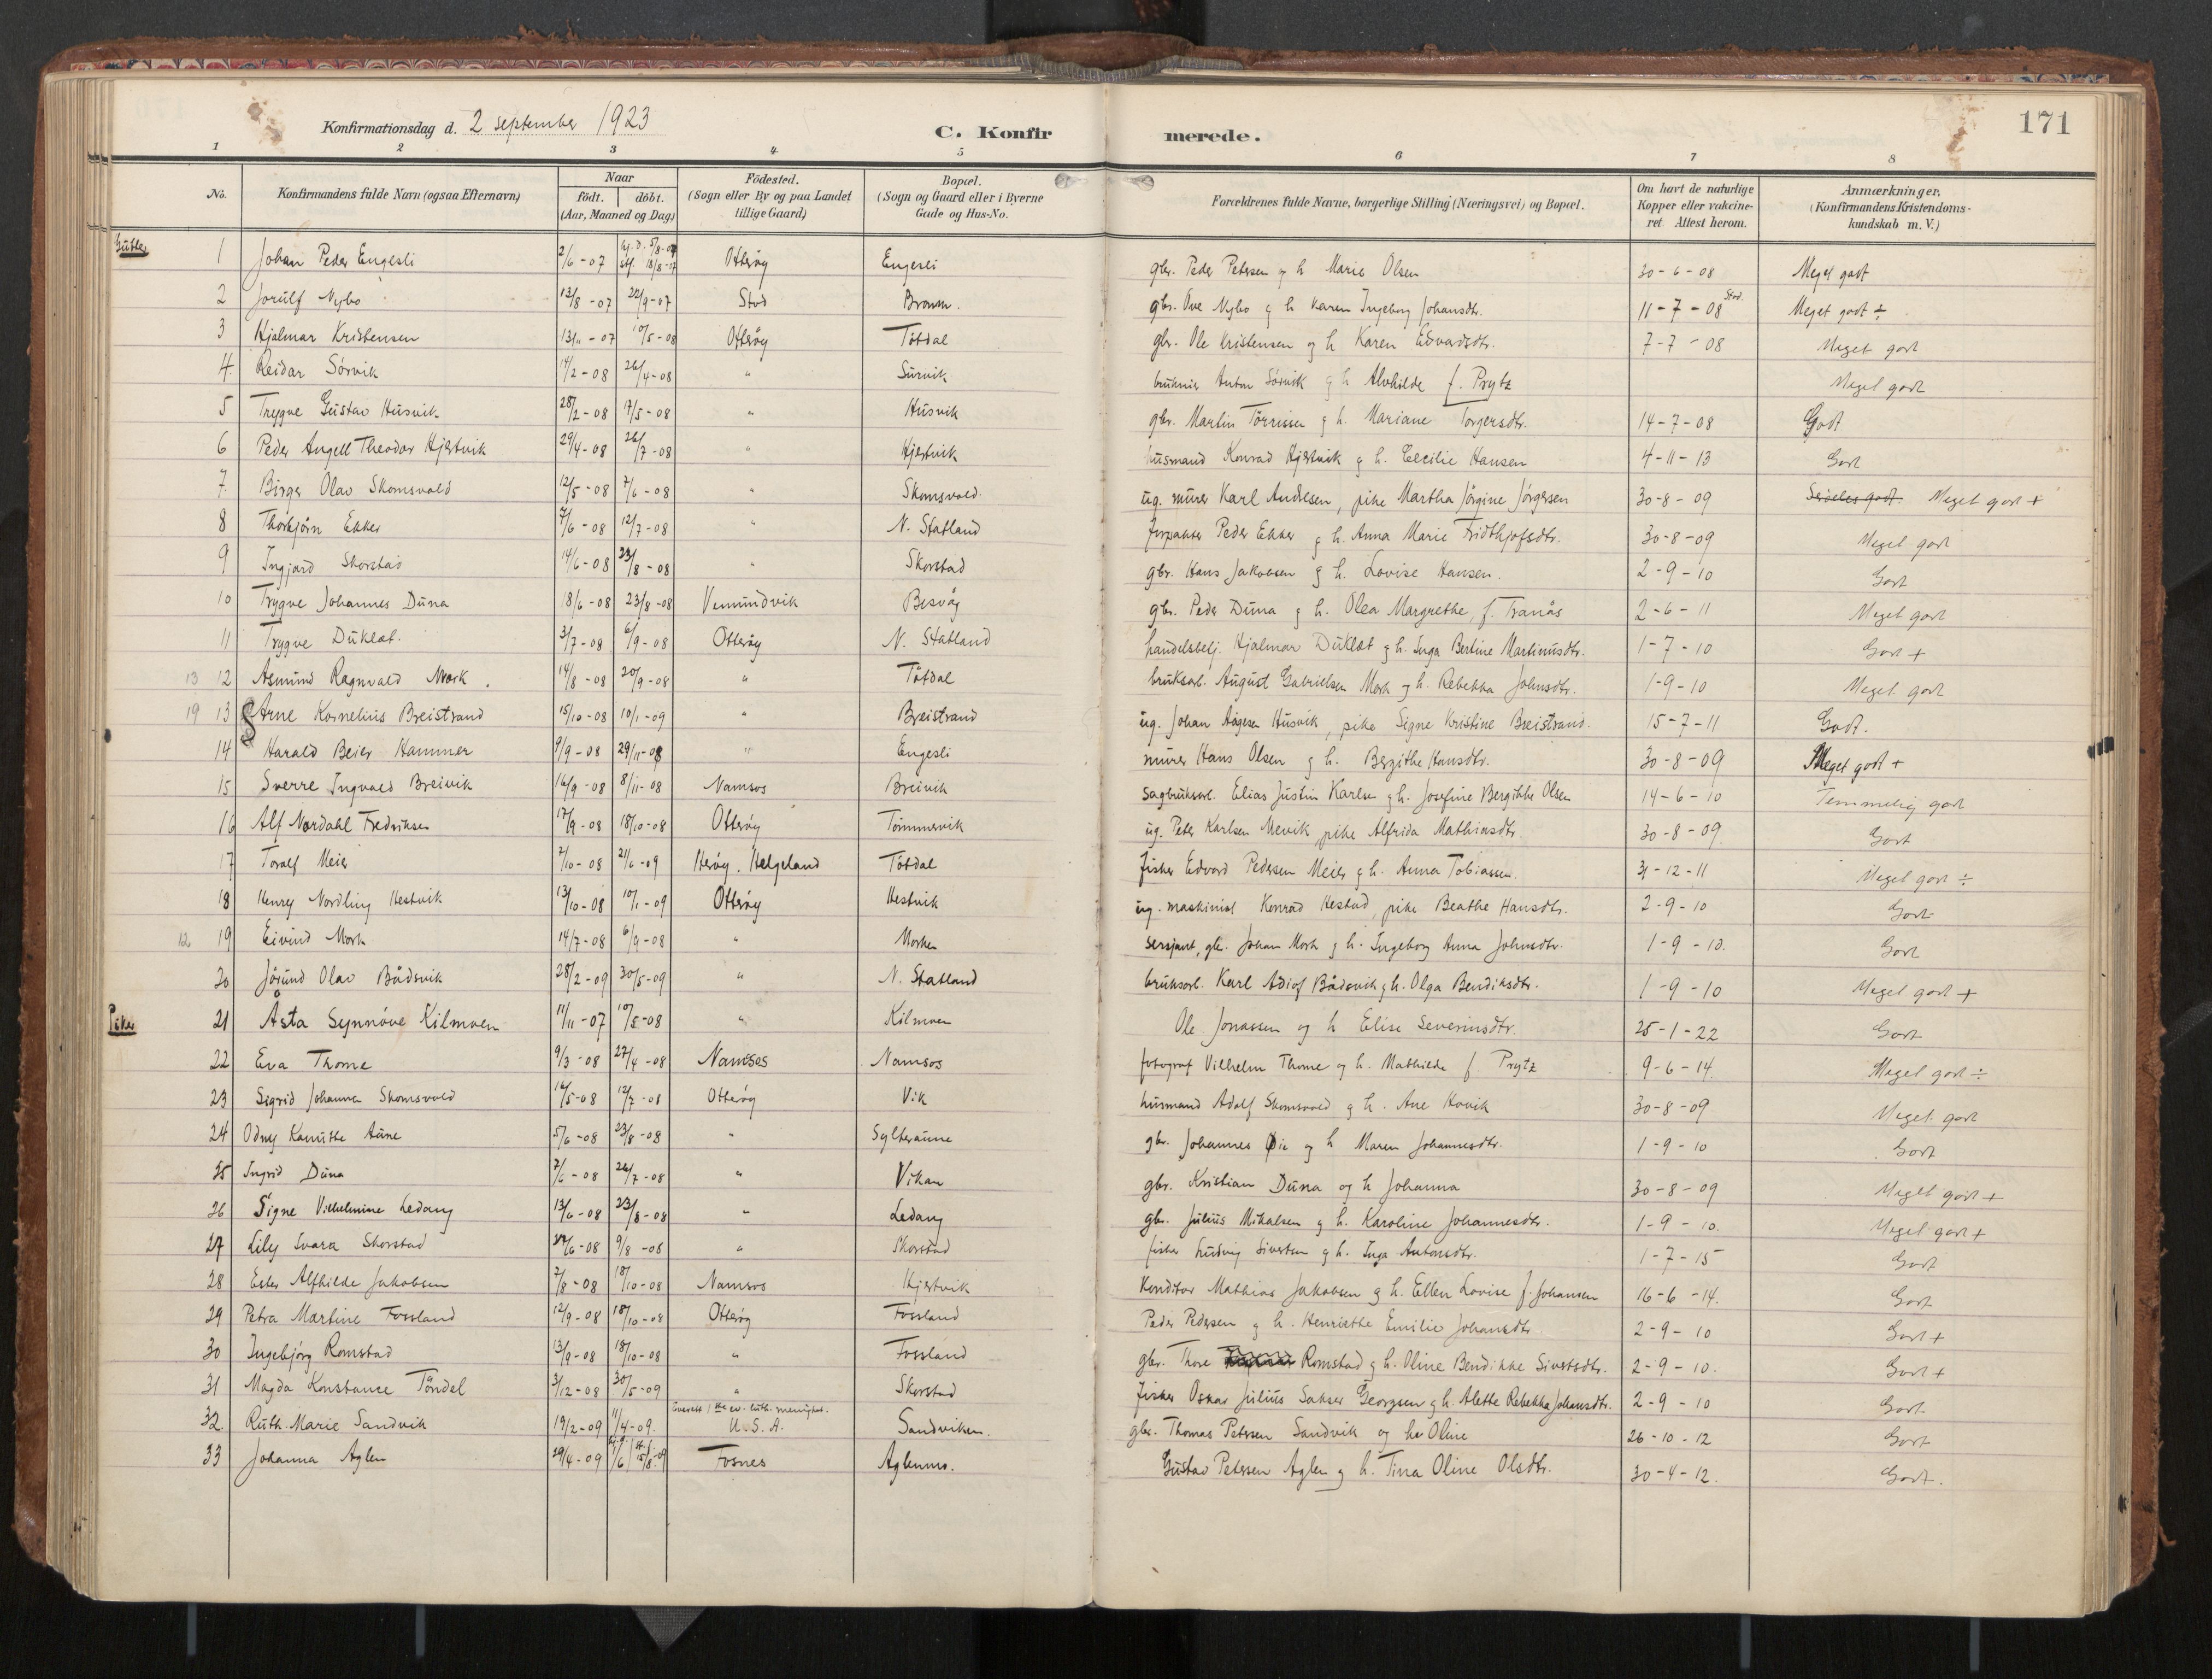 171
Konfirmationsdag d. 2 september 1923
C. Konfirmerede.
1 2 3 4 5 6 7 8
No. Konfirmandens fulde Navn (ogsaa Efternavn) Naar født. døbt. (Aar, Maaned og Dag) Födested. (Sogn eller By og paa Landet tillige Gaard) Bopæl. (Sogn og Gaard eller i Byerne Gade og Hus-No. Forældrenes fulde Navne, borgerlige Stilling (Næringsvei) og Bopæl. Om havt de naturlige Kopper eller vakcineret. Attest herom. Anmærkninger. (Konfirmandens Kristendomskundskab m. V.)
Gutter
1 Johan Peder Engesli 2/6-07 hj. d. 5/8-07 stf. 18/8-17 Otterøy Engesli gbr. Peder Petersen og h Marie Olsen 30-6-08 Meget godt
2 Jorulf Nybo 13/8-07 22/9-07 Stod Braum. gbr. Ove Nybo g h Karen Ingeborg Johansdtr. 11-7-08 Stod. Meget godt ÷
3 Hjalmar Kristensen 13/11-07 10/5-08 Otterøy Tøtdal gbr. Ole Kristensen og h Karen Edvardsdtr. 7-7-08 Meget godt
4 Reidar Sörvik 14/2-08 26/4-08 " Survik Anton Sörvik g h Alvhilde f. Prytz Meget godt
5 Trygve Gustav Husvik 28/2-08 17/5-08 " Husvik gbr. Martin Törrissen g h. Mariane Torgersdtr. 14-7-08 Godt
6 Peder Angell Theodor Hjertvik 29/4-08 26/7-08 " Hjertvik husmand Konrad Hjertvik g h. Cecilie Hansen 4-11-13 Godt
7 Birger Olav Skomsvold 12/5-08 7/6-08 " Skomsvold. ug. murer Karl Andresen, pike Martha Jörgine Jörgesen 30-8-09 Meget godt +
8 Thorbjörn Ekker 7/6-08 12/7-08 " N. Statland forpakter Peder Ekker g h. Anna Marie Fridthjofsdtr. 30-8-09 Meget godt
9 Ingjard Skorstad 14/6-08 23/8-08 " Skorstad gbr. Hans Jakobsen g h. Lovise Hansen. 2-9-10 Godt
10 Trygve Johannes Duna 18/6-08 23/8-08 Vemundvik Besvåg gbr. Peder Duna g h. Olea Margrethe, f. Tranås 2-6-11 Meget godt
11 Trygve Duklæt. 3/7-08 6/9-08 Otterøy N. Statland handelsbetj. Hjalmar Duklæt g h. Inga Bertine Martinusdtr. 1-7-10 Godt +
13 12 Asmund Ragnvald Mork. 14/8-08 20/9-08 " Tøtdal bruksarb. August Gabrielsen Mork og h. Rebekka Johnsdtr. 1-9-10 Meget godt
19 13 Arne Kornelius Breistrand 15/10-08 10/1-09 " Breistrand ug. Johan Aagesen Husvik, pike Signe Kristine Breistrand. 15-7-11 Godt.
14 Harald Beier Hammer 9/9-08 29/11-08 " Engesli murer Hans Olsen g h. Bergithe Hansdtr. 30-8-09 Meget godt +
15 Sverre Ingvald Breivik 16/9-08 8/11-08 Namsos Breivik sagbruksarb. Elias Justin Karlsen g h. Josefine Bergitthe Olsen 14-6-10 Temmelig godt
16 Alf Nordahl Fredriksen 17/9-08 18/10-08 Otterøy Tömmervik ug. Peter Karlsen Mevik, pike Alfrida Mathiasdtr. 30-8-09. Godt
17 Toralf Meier 7/10-08 21/6-09 Herøy. Helgeland Tøtdal fisker Edvard Pedersen Meier g h. Anna Tobiassen. 31-12-11 Meget godt ÷
18 Henry Nordling Hestvik 13/10-08 10/1-09 Otterøy Hestvik ug. maskinist Konrad Hestad, pike Beathe Hansdtr. 2-9-10 Godt
12 19 Eivind Mork 14/7-08 6/9-08 " Morken sersjant, gbr. Johan Mork g h. Ingeborg Anna Johnsdtr. 1-9-10. Godt
20 Jörund Olav Bådsvik 28/2-09 30/5-09 " N. Statland bruksarb. Karl Adiof Bådsvik g h. Olga Bendiksdtr. 1-9-10 Meget godt +
Piker
21 Åsta Synnöve Kilmoen 11/11-07 10/5-08 " Kilmoen Ole Jonassen og h Elise Severinsdtr. 25-1-22 Godt
22 Eva Thorne 9/3-08 27/4-08 Namsos Namsos fotograf Vilhelm Thorne og h. Mathilde f. Prytz 9-6-14. Meget godt ÷
23 Sigrid Johanna Skomsvold 16/5-08 12/7-08 Otterøy Vik husmand Adolf Skomsvold g h. Ane Hovik 30-8-09 Meget godt
24 Odny Kanutte Aune 5/6-08 23/8-08 " Sylteraune gbr. Johannes Øie og h Maren Johannesdtr. 1-9-10 Godt
25 Ingrid Duna 7/6-08 26/7-08 " Vikan gbr. Kristian Duna og h Johanna 30-8-09 Meget godt +
26 Signe Vilhelmine Ledang 13/6-08 23/8-08 " Ledang gbr. Julius Mikalsen g h. Karoline Johannesdtr. 1-9-10. Meget godt +
27 Lily Svara Skorstad 27/6-08 9/8-08 " Skorstad fisker Ludvig Sivertsen g h. Inga Antonsdtr. 1-7-15 Godt
28 Ester Alfhilde Jakobsen 7/8-08 18/10-08 Namsos Hjertvik Konditor Mathias Jakobsen g h. Ellen Lovise f. Johansen 16-6-14. Godt
29 Petra Martine Fossland 12/9-08 18/10-08 Otterøy Fossland Peder Pedersen g h. Henriette Emilie Johansdtr. 2-9-10 Godt +
30 Ingebjörg Romstad 13/9-08 18/10-08 " Fossland gbr. Thore Romstad g h. Oline Bendikke Sivertsdtr. 2-9-10. Godt +
31 Magda Konstance Töndel 3/12-08 30/5-09 " Skorstad fisker Oskar Julius Sakser Georgsen g h. Alette Rebekka Johansdtr. 2-9-10 Godt
32 Ruth Marie Sandvik 19/2-09 11/4-09. Everett 1ste ev. luth. menighet. U.S.A. Sandviken. gbr. Thomas Petersen Sandvik og h Oline 26-10-12 Godt
33 Johanna Aglen 29/4-09 hj. d. 1/6 st. f. 15/8-09 Fosnes Aglenmo. Gustav Petersen Aglen g h. Tina Oline Olsdtr. 30-4-12. Godt.